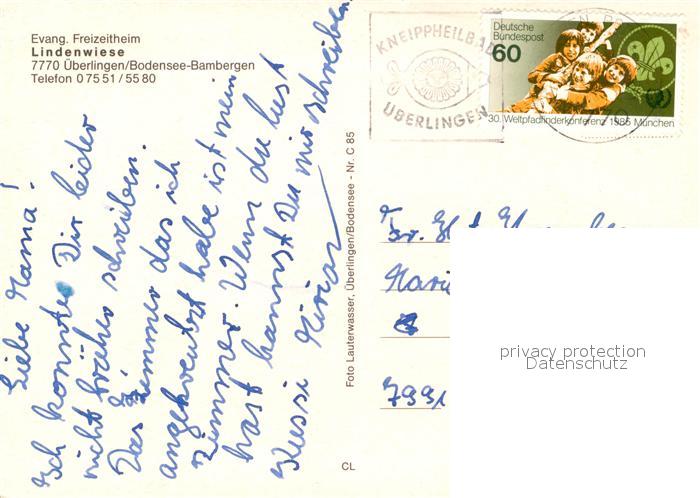 Evang. Freizeitheim
Lindenwiese
7770 Überlingen/Bodensee-Bambergen
Telefon 0 75 51 / 55 80
Liebe Mama!
Ich konnte Dir leider
nicht früher schreiben.
Das Zimmer das ich
angekreutzt habe ist mein
Zimmer. Wenn du lust
hast kannst Du mir schreiben
Kussi Miriam
Foto Lauterwasser, Überlingen/Bodensee - Nr. C 85
CL
KNEIPPHEILBAD
ÜBERLINGEN
Deutsche
Bundespost
60
30. Weltpfadfinderkonferenz 1985 München
privacy protection
Datenschutz